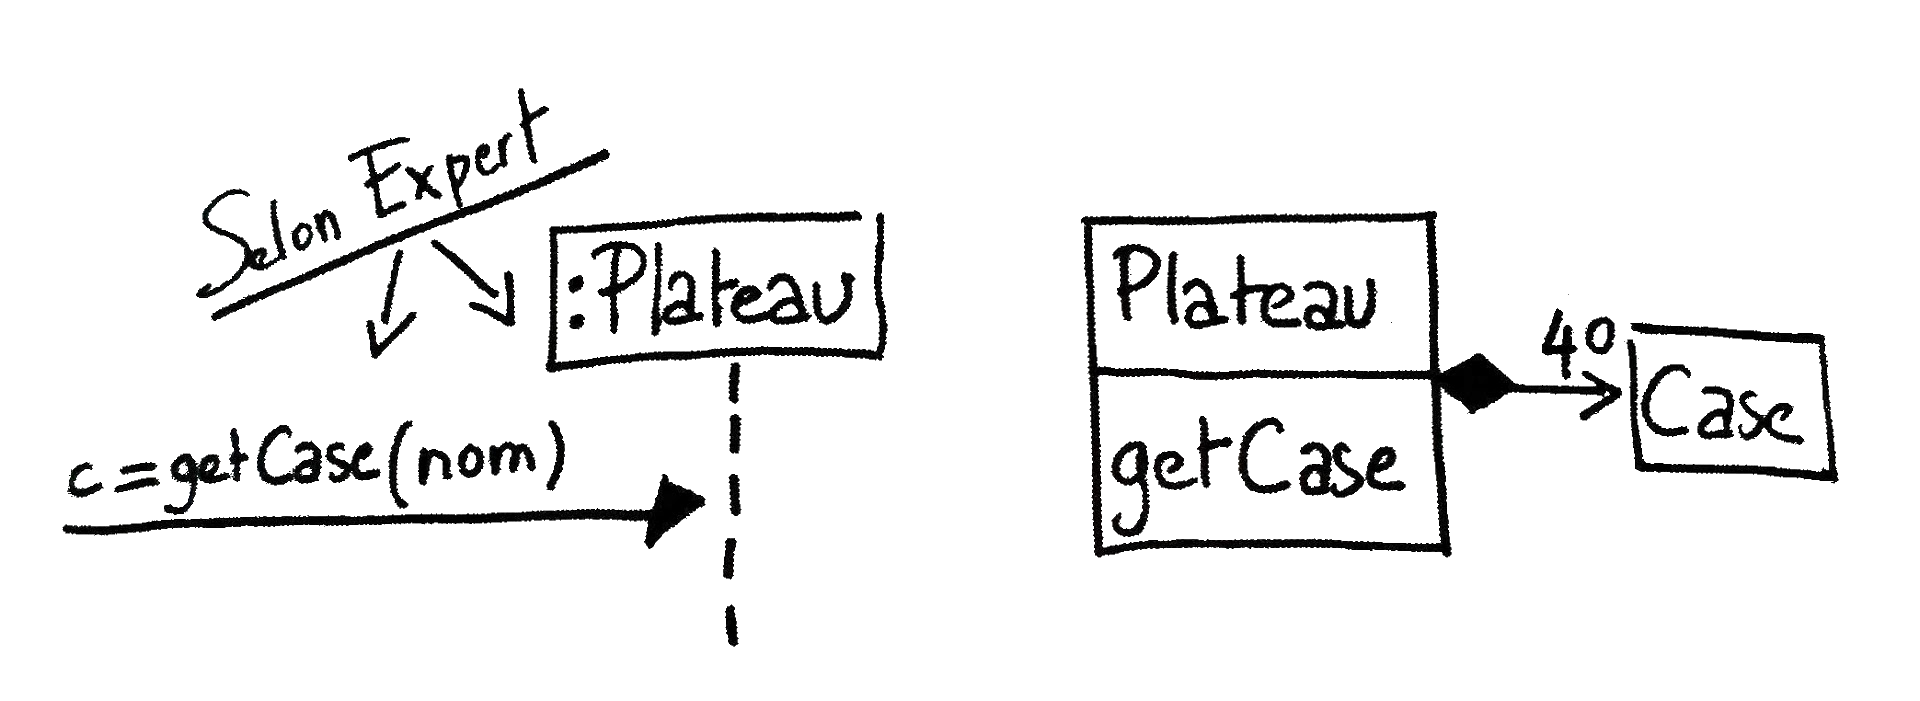 Selon Expert
:Plateau
c = getCase(nom)
Plateau
getCase
40
Case